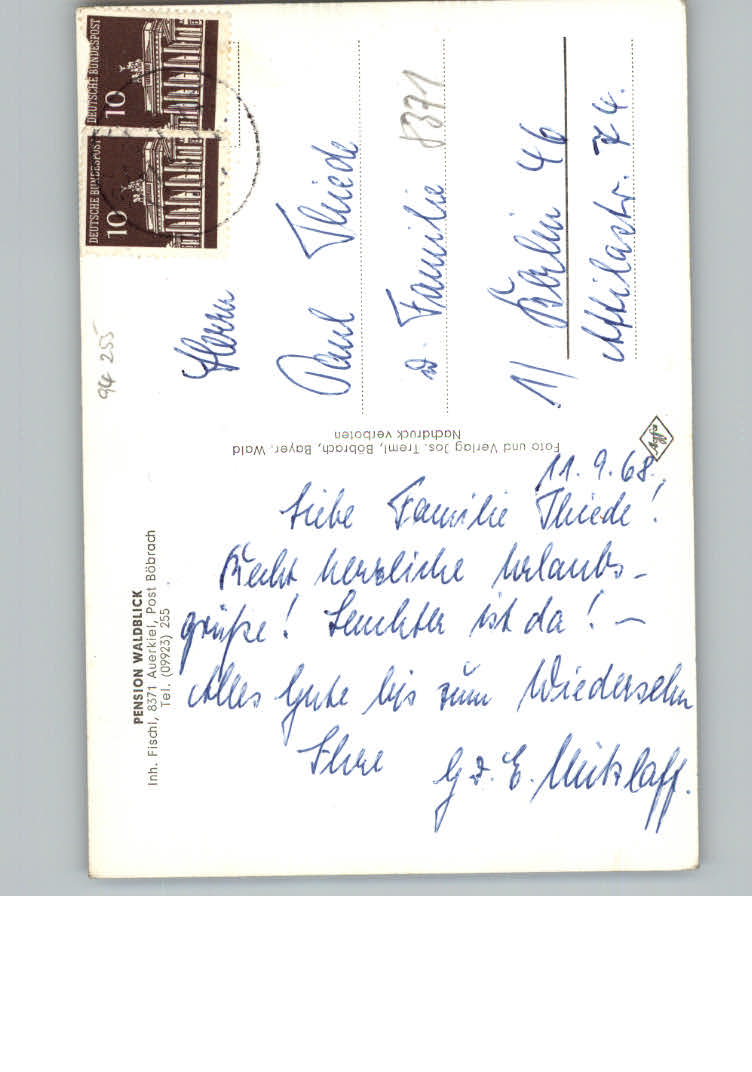 PENSION WALDBLICK
Inh. Fischl, 8371 Auerkiel, Post Böbrach
Tel. (09923) 255
11.9.68.
Liebe Familie Thiede!
Recht herzliche Urlaubs-
grüße! ist da! –
Alles Gute bis zum Wiedersehn
Ihre G. u. E.
Foto und Verlag Jos. Treml, Böbrach, Bayer. Wald
Nachdruck verboten
Agfa
94 255
DEUTSCHE BUNDESPOST
10
DEUTSCHE BUNDESPOST
10
Herrn
Paul Thiede
u. Familie 8371
1/ Berlin 46
Attilastr. 74.